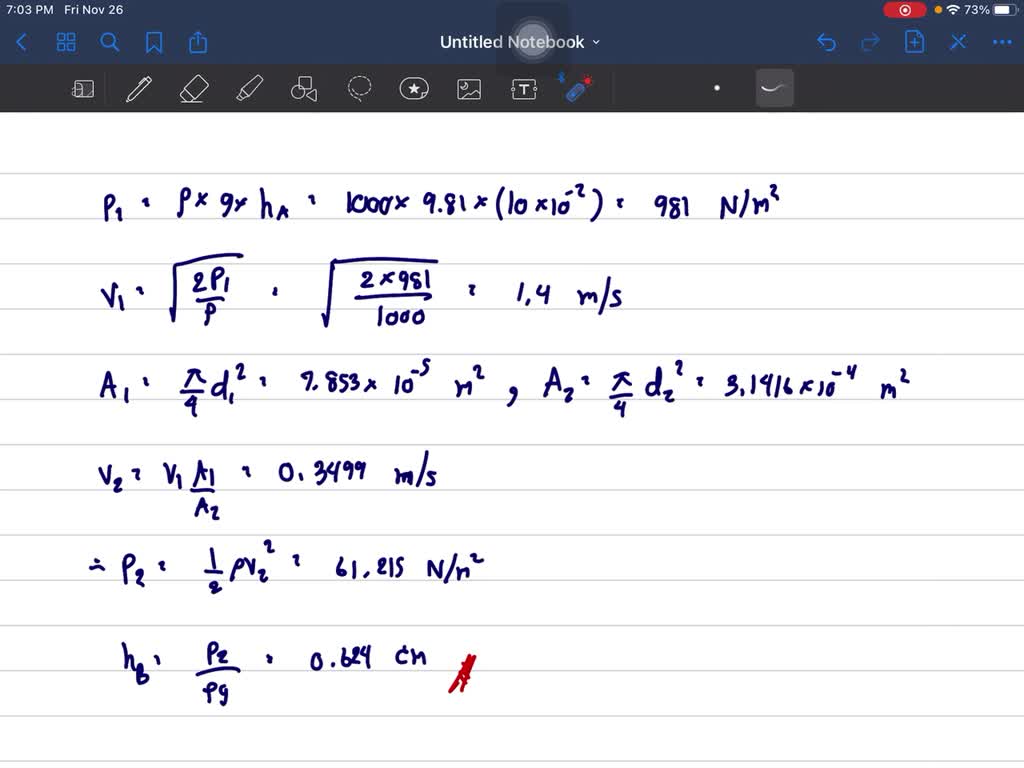 7:03 PM Fri Nov 26 73%
Untitled Notebook
P₁ = ρ × g × h_A = 1000 × 9.81 × (10 × 10⁻²) = 981 N/m²
V₁ = √(2P₁/ρ) = √(2 × 981/1000) = 1.4 m/s
A₁ = π/4 d₁² = 7.853 × 10⁻⁵ m², A₂ = π/4 d₂² = 3.1416 × 10⁻⁴ m²
V₂ = V₁ A₁/A₂ = 0.3499 m/s
∴ P₂ = 1/2 ρV₂² = 61.215 N/m²
h_B = P₂/ρg = 0.624 cm